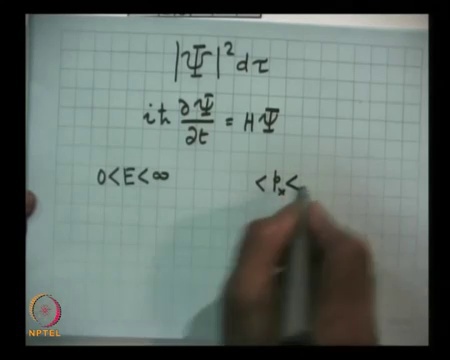 |Ψ|² dτ
iħ ∂Ψ/∂t = HΨ
0<E<∞ <pₓ<
NPTEL